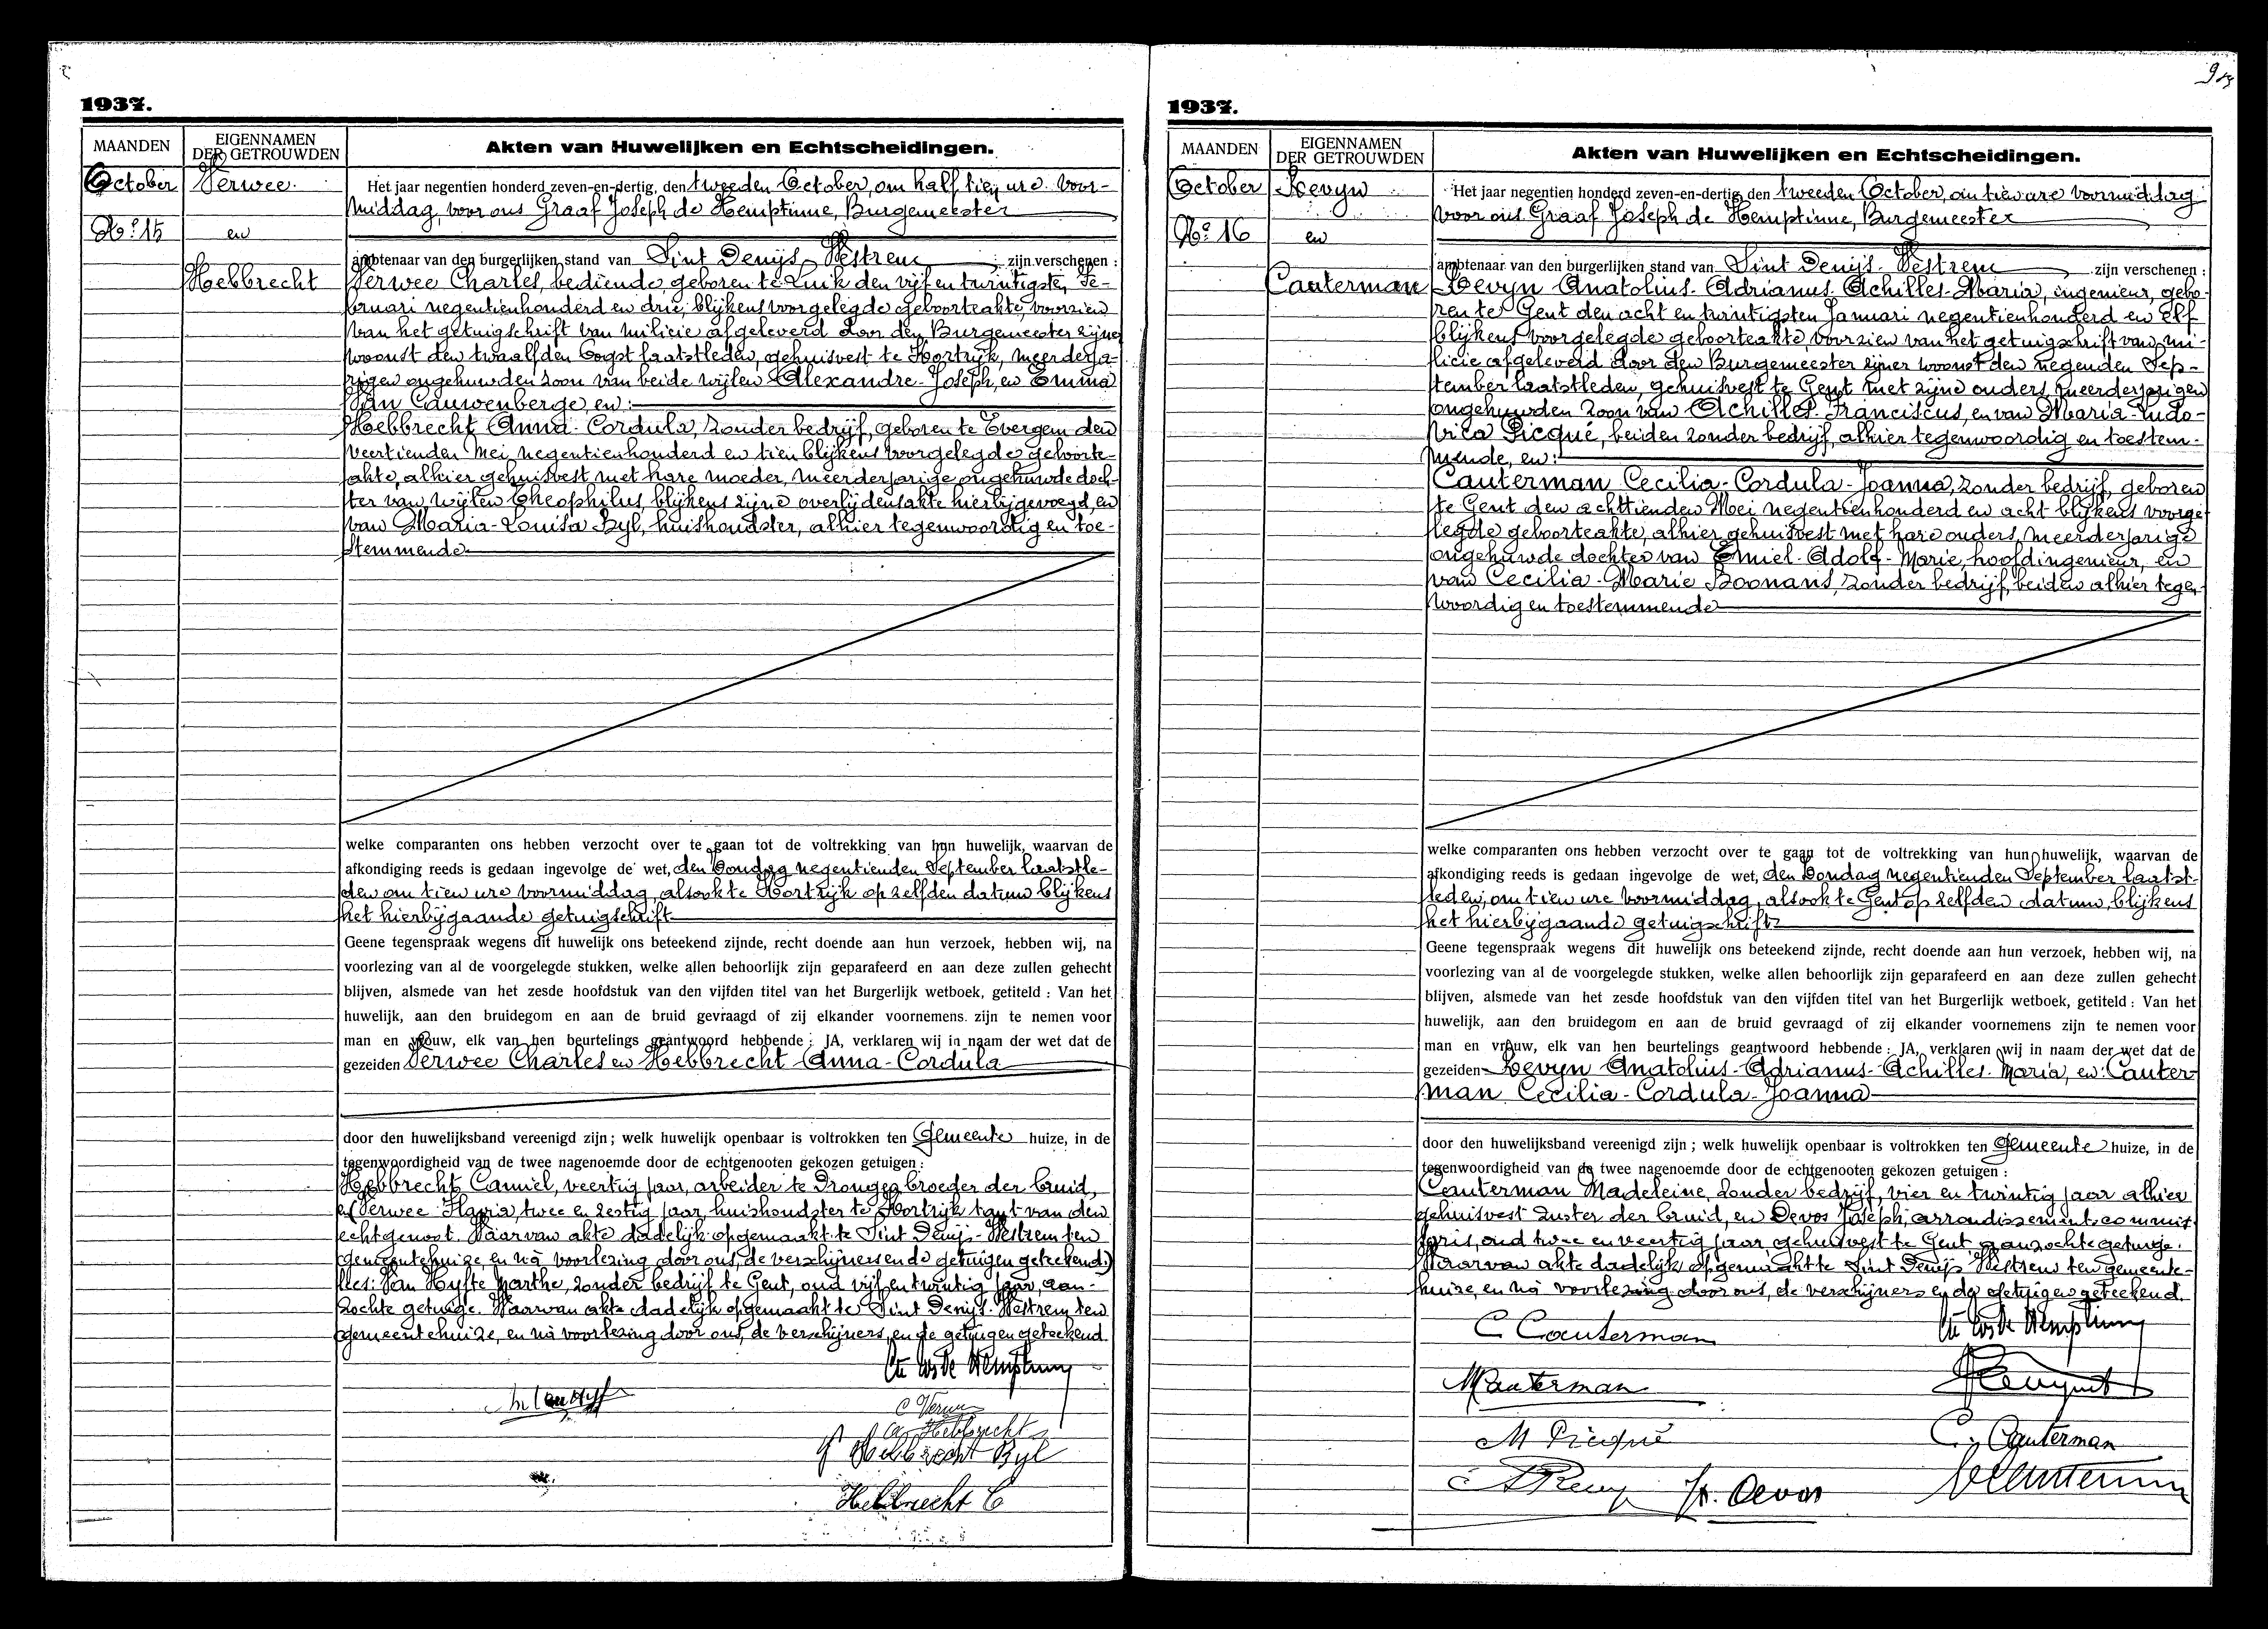 1937.
MAANDEN
EIGENNAMEN
DER GETROUWDEN
Akten van Huwelijken en Echtscheidingen.
October
Verwee
No. 15
en
Hebbrecht
Het jaar negentien honderd zeven-en-dertig, den tweeden October, om half tien ure voor-
middag, voor ons Graaf Joseph de Hemptinne, Burgemeester
ambtenaar van den burgerlijken stand van Sint Denijs Westrem zijn verschenen :
Verwee Charles, bediende, geboren te Luik den vijf en twintigsten Fe-
bruari negentienhonderd en drie, blijkens voorgelegde geboorteakte, voorzien
van het getuigschrift van milicie afgeleverd door den Burgemeester zijner
woonst den twaalfden Oogst laatstleden, gehuisvest te Kortrijk, meerderja-
rigen ongehuwden zoon van beide wijlen Alexandre-Joseph, en Emma
Van Cauwenberge, en :
Hebbrecht Anna-Cordula, zonder bedrijf, geboren te Evergem den
veertienden Mei negentienhonderd en tien blijkens voorgelegde geboorte-
akte, alhier gehuisvest met hare moeder, meerderjarige ongehuwde doch-
ter van wijlen Theophilus, blijkens zijne overlijdensakte hierbijgevoegd, en
van Maria-Louisa Byl, huishoudster, alhier tegenwoordig en toe-
stemmende
welke comparanten ons hebben verzocht over te gaan tot de voltrekking van hun huwelijk, waarvan de
afkondiging reeds is gedaan ingevolge de wet, den Zondag negentienden September laatstle-
den om tien ure voormiddag, alsook te Kortrijk op zelfden datum blijkens
het hierbijgaande getuigschrift
Geene tegenspraak wegens dit huwelijk ons beteekend zijnde, recht doende aan hun verzoek, hebben wij, na
voorlezing van al de voorgelegde stukken, welke allen behoorlijk zijn geparafeerd en aan deze zullen gehecht
blijven, alsmede van het zesde hoofdstuk van den vijfden titel van het Burgerlijk wetboek, getiteld : Van het
huwelijk, aan den bruidegom en aan de bruid gevraagd of zij elkander voornemens zijn te nemen voor
man en vrouw, elk van hen beurtelings geantwoord hebbende : JA, verklaren wij in naam der wet dat de
gezeiden Verwee Charles en Hebbrecht Anna-Cordula
door den huwelijksband vereenigd zijn ; welk huwelijk openbaar is voltrokken ten Gemeente huize, in de
tegenwoordigheid van de twee nagenoemde door de echtgenooten gekozen getuigen :
Hebbrecht Camiel, veertig jaar, arbeider te Drongen broeder der bruid,
en (Verwee Flavia, twee en zestig jaar, huishoudster te Kortrijk tant van den
echtgenoot. Waarvan akte dadelijk opgemaakt te Sint Denijs-Westrem ten
gemeentehuize, en nà voorlezing door ons, de verschijners en de getuigen geteekend.)
lees: Van Hyfte Marthe, zonder bedrijf te Gent, oud vijf en twintig jaar, aan-
zochte getuige. Waarvan akte dadelijk opgemaakt te Sint Denijs-Westrem ten
gemeentehuize, en nà voorlezing door ons, de verschijners en de getuigen geteekend.
C Verwee
A. Hebbrecht
Hebbrecht Byl
Hebbrecht C
1937.
MAANDEN
EIGENNAMEN
DER GETROUWDEN
Akten van Huwelijken en Echtscheidingen.
October
Revyn
No. 16
en
Cauterman
Het jaar negentien honderd zeven-en-dertig, den tweeden October, om tien ure voormiddag
voor ons Graaf Joseph de Hemptinne, Burgemeester
ambtenaar van den burgerlijken stand van Sint Denijs-Westrem zijn verschenen :
Revyn Anatolius-Adrianus-Achilles-Maria, ingenieur, gebo-
ren te Gent den acht en twintigsten Januari negentienhonderd en elf
blijkens voorgelegde geboorteakte, voorzien van het getuigschrift van mi-
licie afgeleverd door den Burgemeester zijner woonst den negenden Sep-
tember laatstleden, gehuisvest te Gent met zijne ouders, meerderjarigen
ongehuwden zoon van Achilles-Franciscus, en van Maria-Ludo-
vica Picqué, beiden zonder bedrijf, alhier tegenwoordig en toestem-
mende, en :
Cauterman Cecilia-Cordula-Joanna, zonder bedrijf, geboren
te Gent den achttienden Mei negentienhonderd en acht blijkens voorge-
legde geboorteakte, alhier gehuisvest met hare ouders, meerderjarige
ongehuwde dochter van Emiel-Adolf-Marie, hoofdingenieur, en
van Cecilia-Marie Boonans, zonder bedrijf, beiden alhier tegen-
woordig en toestemmende
welke comparanten ons hebben verzocht over te gaan tot de voltrekking van hun huwelijk, waarvan de
afkondiging reeds is gedaan ingevolge de wet, den Zondag negentienden September laatst-
leden, om tien ure voormiddag, alsook te Gent op zelfden datum, blijkens
het hierbijgaande getuigschrift
Geene tegenspraak wegens dit huwelijk ons beteekend zijnde, recht doende aan hun verzoek, hebben wij, na
voorlezing van al de voorgelegde stukken, welke allen behoorlijk zijn geparafeerd en aan deze zullen gehecht
blijven, alsmede van het zesde hoofdstuk van den vijfden titel van het Burgerlijk wetboek, getiteld : Van het
huwelijk, aan den bruidegom en aan de bruid gevraagd of zij elkander voornemens zijn te nemen voor
man en vrouw, elk van hen beurtelings geantwoord hebbende : JA, verklaren wij in naam der wet dat de
gezeiden Revyn Anatolius-Adrianus-Achilles-Maria, en: Cauter-
man Cecilia-Cordula-Joanna
door den huwelijksband vereenigd zijn ; welk huwelijk openbaar is voltrokken ten Gemeente huize, in de
tegenwoordigheid van de twee nagenoemde door de echtgenooten gekozen getuigen :
Cauterman Madeleine, zonder bedrijf, vier en twintig jaar alhier
gehuisvest zuster der bruid, en Devos Joseph, arrondissementscommis-
saris, oud twee en veertig jaar gehuisvest te Gent aanzochte getuige.
Waarvan akte dadelijk opgemaakt te Sint Denijs Westrem ten gemeente-
huize, en nà voorlezing door ons, de verschijners en de getuigen geteekend.
C Cauterman
M Cauterman
M Picqué
C. Cauterman
Devos